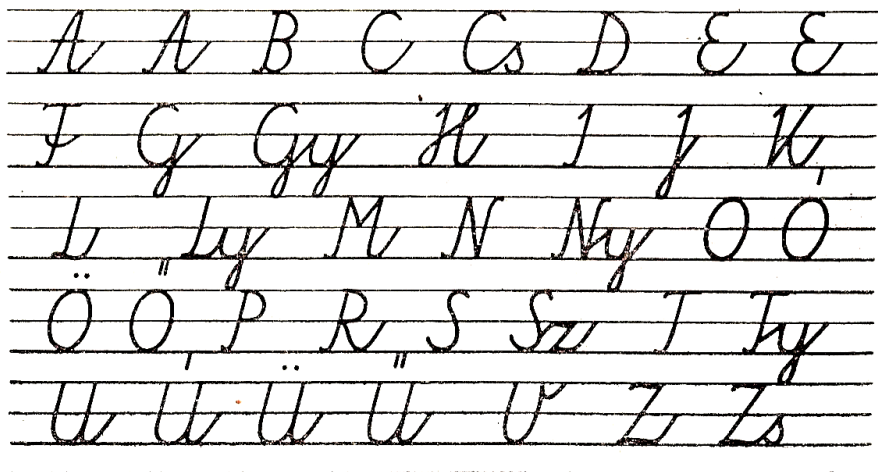 A A B C Cs D E E
F G Gy H I J K
L Ly M N Ny O Ó
Ö Ő P R S Sz T Ty
U Ú Ü Ű V Z Zs